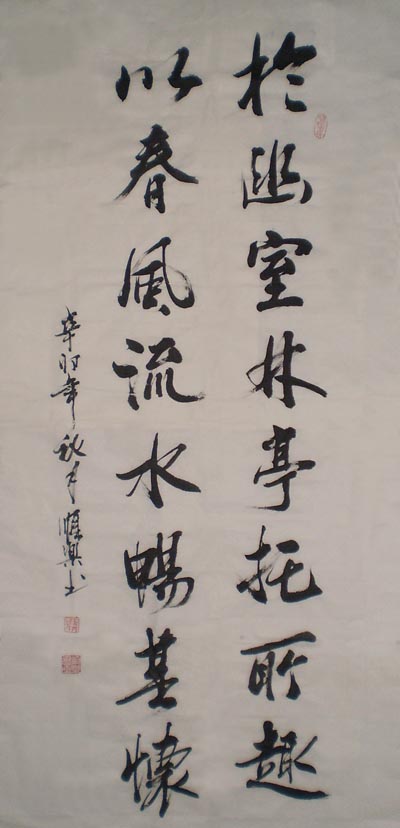 於幽室林亭托所趣
以春風流水暢其懷
辛卯年秋月順興书